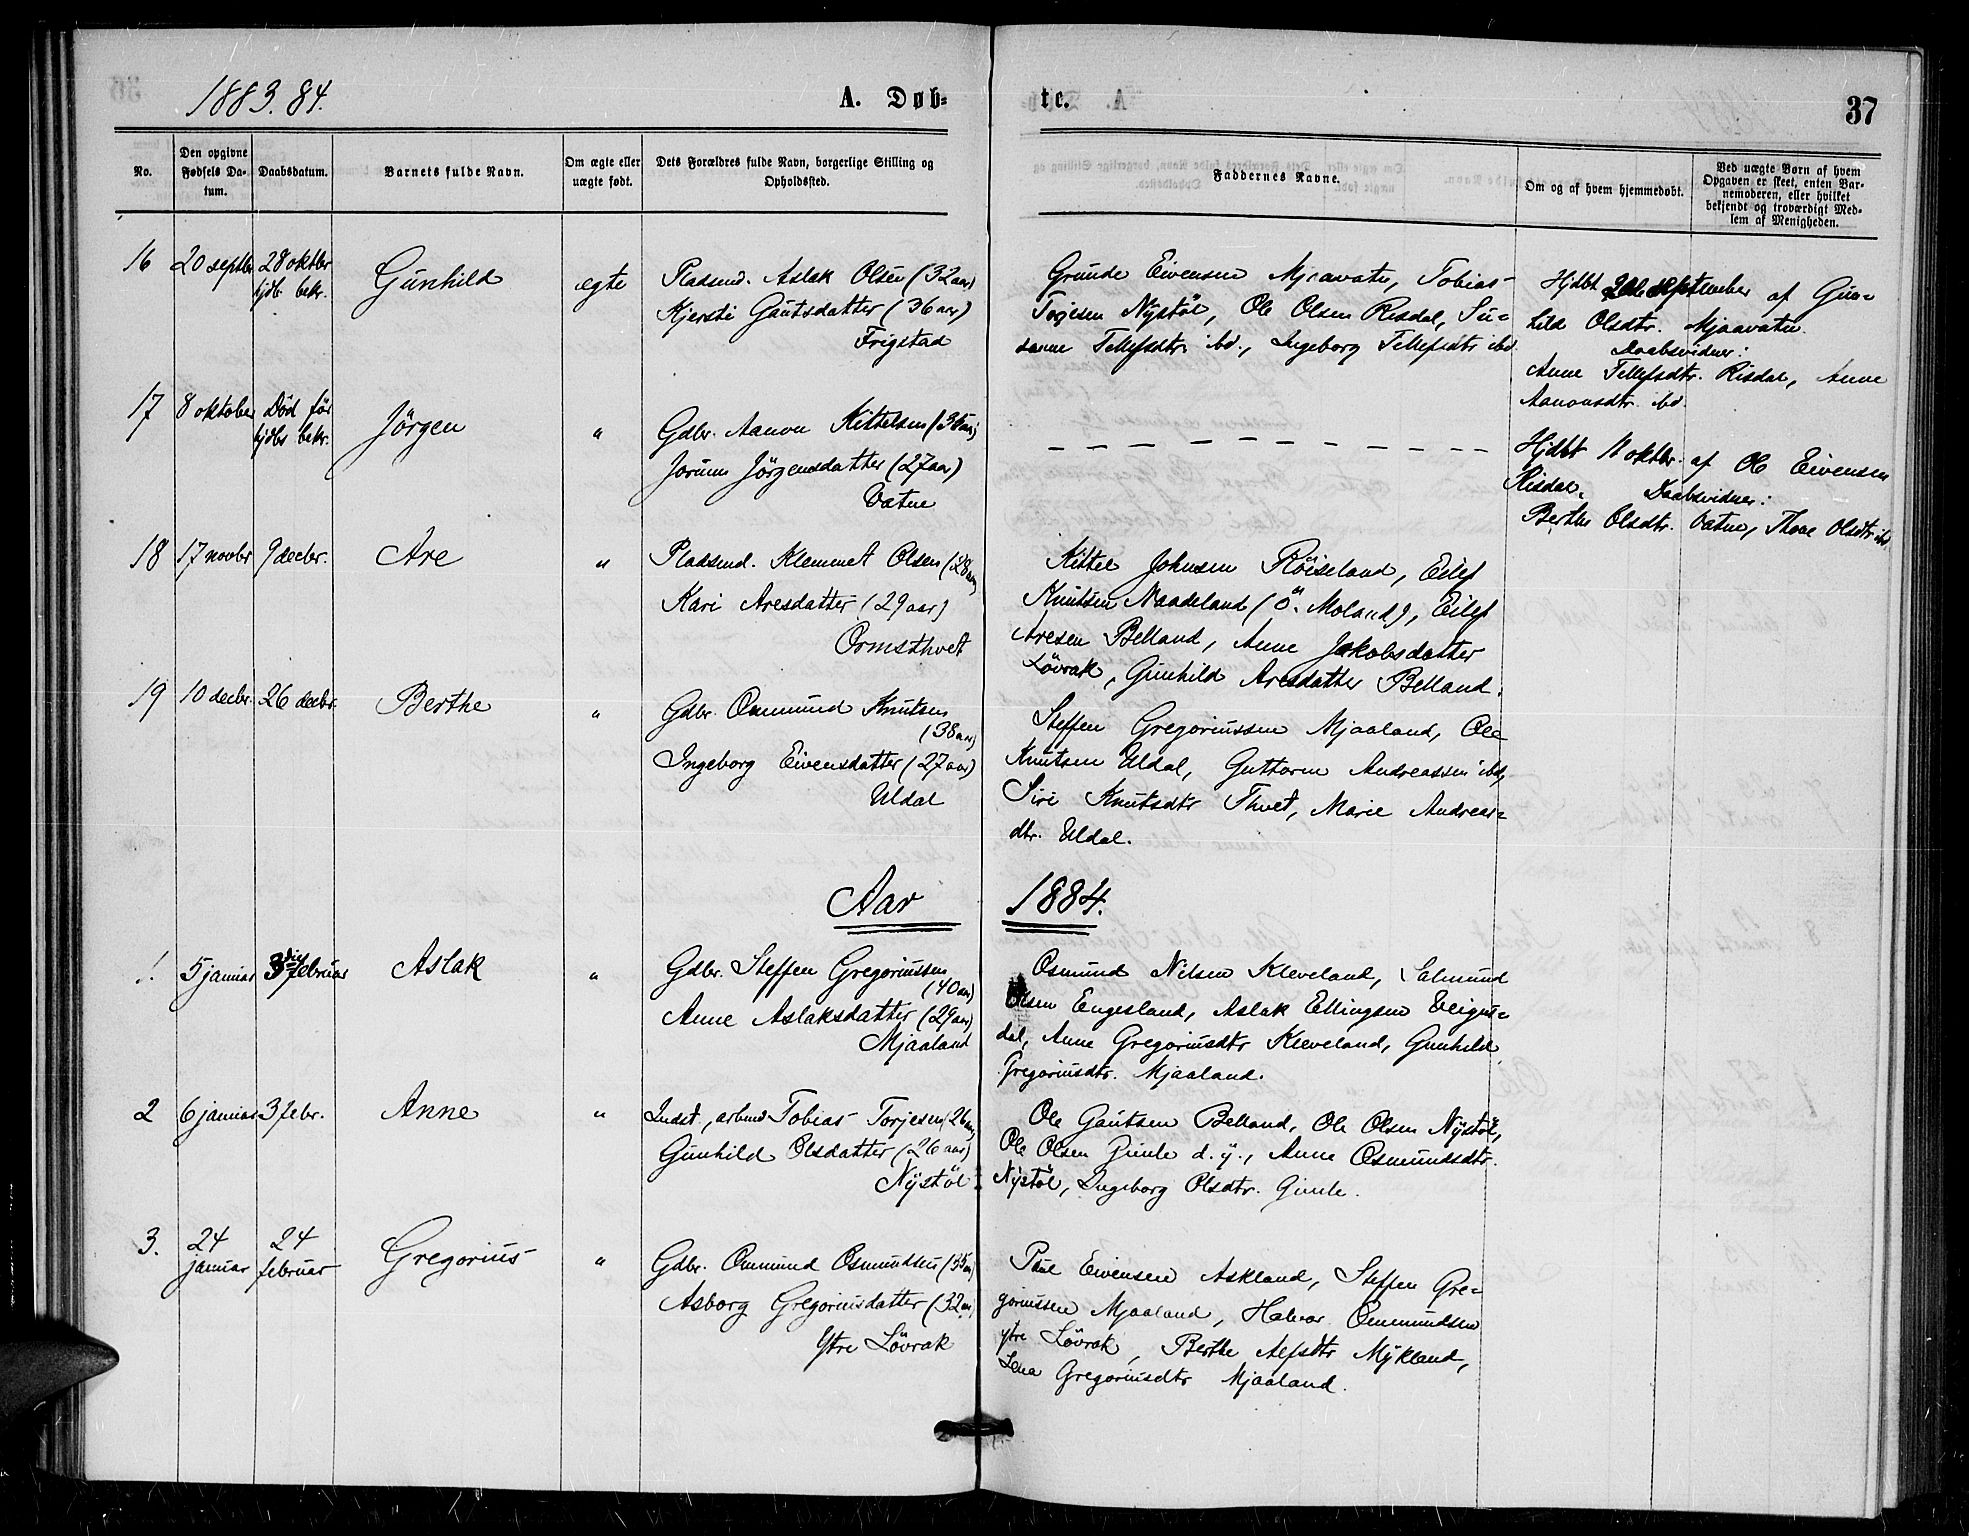 1883.84.
A. Døb-
te.
37
No.
Den opgivne Fødsels Da-
tum.
Daabsdatum.
Barnets fulde Navn.
Om ægte eller
uægte født.
Dets Forældres fulde Navn, borgerlige Stilling og
Opholdssted.
Faddernes Navne.
Om og af hvem hjemmedøbt.
Ved uægte Børn af hvem
Opgaven er skeet, enten Bar-
nemoderen, eller hvilket
bekjendt og troværdigt Med-
lem af Menigheden.
16 20 septbr 28 oktbr Gunhild egte Pladsmd. Aslak Olsen (32 aar)
hjdb. bekr.
Kjersti Gautsdatter (36 aar)
Frigstad
Grunde Eivensen Mjaavatn, Tobias
Torjesen Nystöl, Ole Olsen Risdal, Su=
sanne Tellefsdtr ibd., Ingeborg Tellefsdtr ibd.
Hjdbt september af Gun=
hild Olsdtr. Mjaavatn.
Daabsvidner:
Anne Tellefsdtr. Risdal, Anne
Aanonsdtr. ibd.
17 8 oktober Död för Jörgen " Gdbr. Aanon Kittelsen (38 aar)
hjdbs bekr.
Jorunn Jörgensdatter (27 aar)
Vatne
Hjdbt 11 oktbr. af Ole Eivensen
Risdal. Daabsvidner:
Berthe Olsdtr. Vatne, Thone Olsdtr ibd.
18 17 novbr 9 decbr. Are " Pladsmd. Klemmet Olsen (28 aar)
Kari Aresdatter (29 aar)
Ormsthvet
Kittel Johnsen Röiseland, Eilef
Knutsen Naadeland (Ö. Moland), Eilef
Aresen Belland, Anne Jakobsdatter
Lövrak, Gunhild Aresdatter Belland.
19 10 decbr. 26 decbr. Berthe " Gdbr. Ommund Knutsen
(38 aar)
Ingeborg Eivensdatter (27 aar)
Uldal
Steffen Gregoriussen Mjaaland, Ole
Knutsen Uldal, Guttorm Andreassen ibd,
Siri Knutsdtr Thvet, Marie Andreas=
dtr. Uldal.
Aar 1884.
1. 5 januar 3die februar Aslak " Gdbr. Steffen Gregoriussen
(40 aar)
Anne Aslaksdatter (29 aar)
Mjaaland
Osmund Nilsen Kleveland, Salmund
Olsen Engesland, Aslak Ellingsen
dal, Anne Gregoriusdtr Kleveland, Gunhild
Gregoriusdtr. Mjaaland.
2 6 januar 3 febr. Anne " Indst., arbmd Tobias Torjesen (26 aar)
Gunhild Olsdatter (26 aar)
Nystöl
Ole Gautsen Belland, Ole Olsen Nystöl,
Ole Olsen Gimle d.y., Anne Osmundsdtr.
Nystöl, Ingeborg Olsdtr. Gimle.
3. 24 24 Gregorius " Gdbr. Ommund Osmundsen (35 aar)
januar februar
Asborg Gregoriusdatter (32 aar)
Ytre Lövrak
Paul Eivensen Askland, Steffen Gre=
goriussen Mjaaland, Halvor Ommundsen
ytre Lövrak, Berthe Alfsdtr Mykland,
Lena Gregoriusdtr Mjaaland.